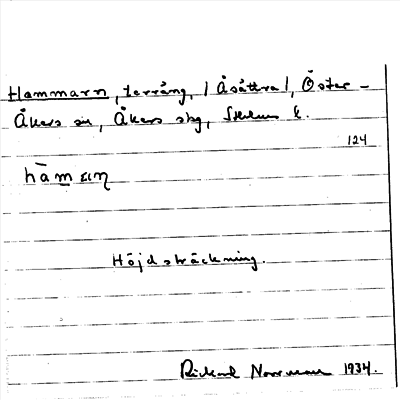 Hammarn, terräng, /Åsättra/, Öster-
Åkers sn, Åkers skg, Sthlms l.
124
hām̲ aṇ
Höjdsträckning.
Rickard Norrman 1934.